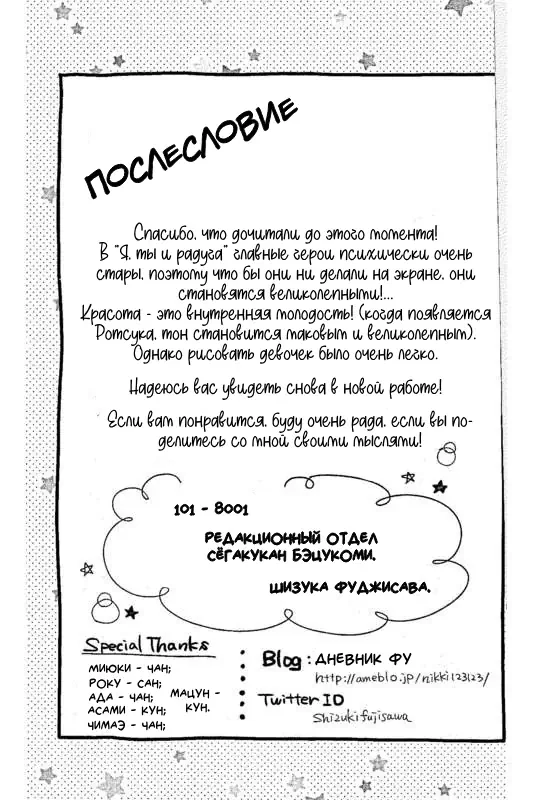 ПОСЛЕСЛОВИЕ
Спасибо, что дочитали до этого момента!
В "Я, ты и радуга" главные герои психически очень
стары, поэтому что бы они ни делали на экране, они
становятся великолепными!...
Красота - это внутренняя молодость! (когда появляется
Ротсука, тон становится маковым и великолепным).
Однако рисовать девочек было очень легко.
Надеюсь вас увидеть снова в новой работе!
Если вам понравится, буду очень рада, если вы по-
делитесь со мной своими мыслями!
101 - 8001
РЕДАКЦИОННЫЙ ОТДЕЛ
СЁГАКУКАН БЭЦУКОМИ.
ШИЗУКА ФУДЖИСАВА.
Special Thanks
МИЮКИ - ЧАН;
РОКУ - САН;
АДА - ЧАН;
АСАМИ - КУН;
ЧИМАЭ - ЧАН;
МАЦУН -
КУН.
Blog : ДНЕВНИК ФУ
http://ameblo.jp/nikki123123/
Twitter ID
Shizukifujisawa